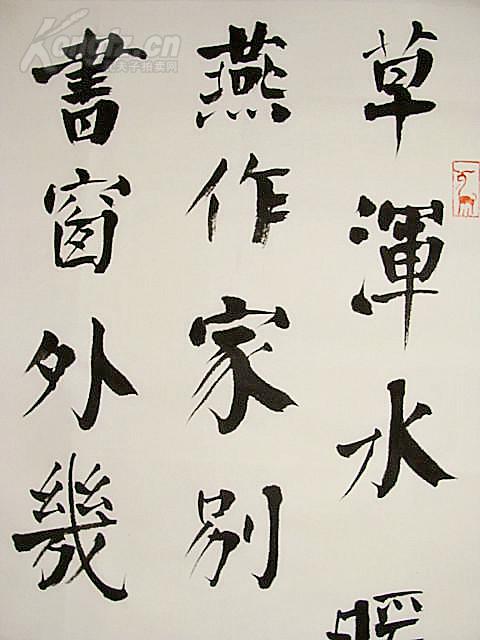 草渾水
燕作家別
書窗外幾
Kongfz.cn
孔夫子拍卖网